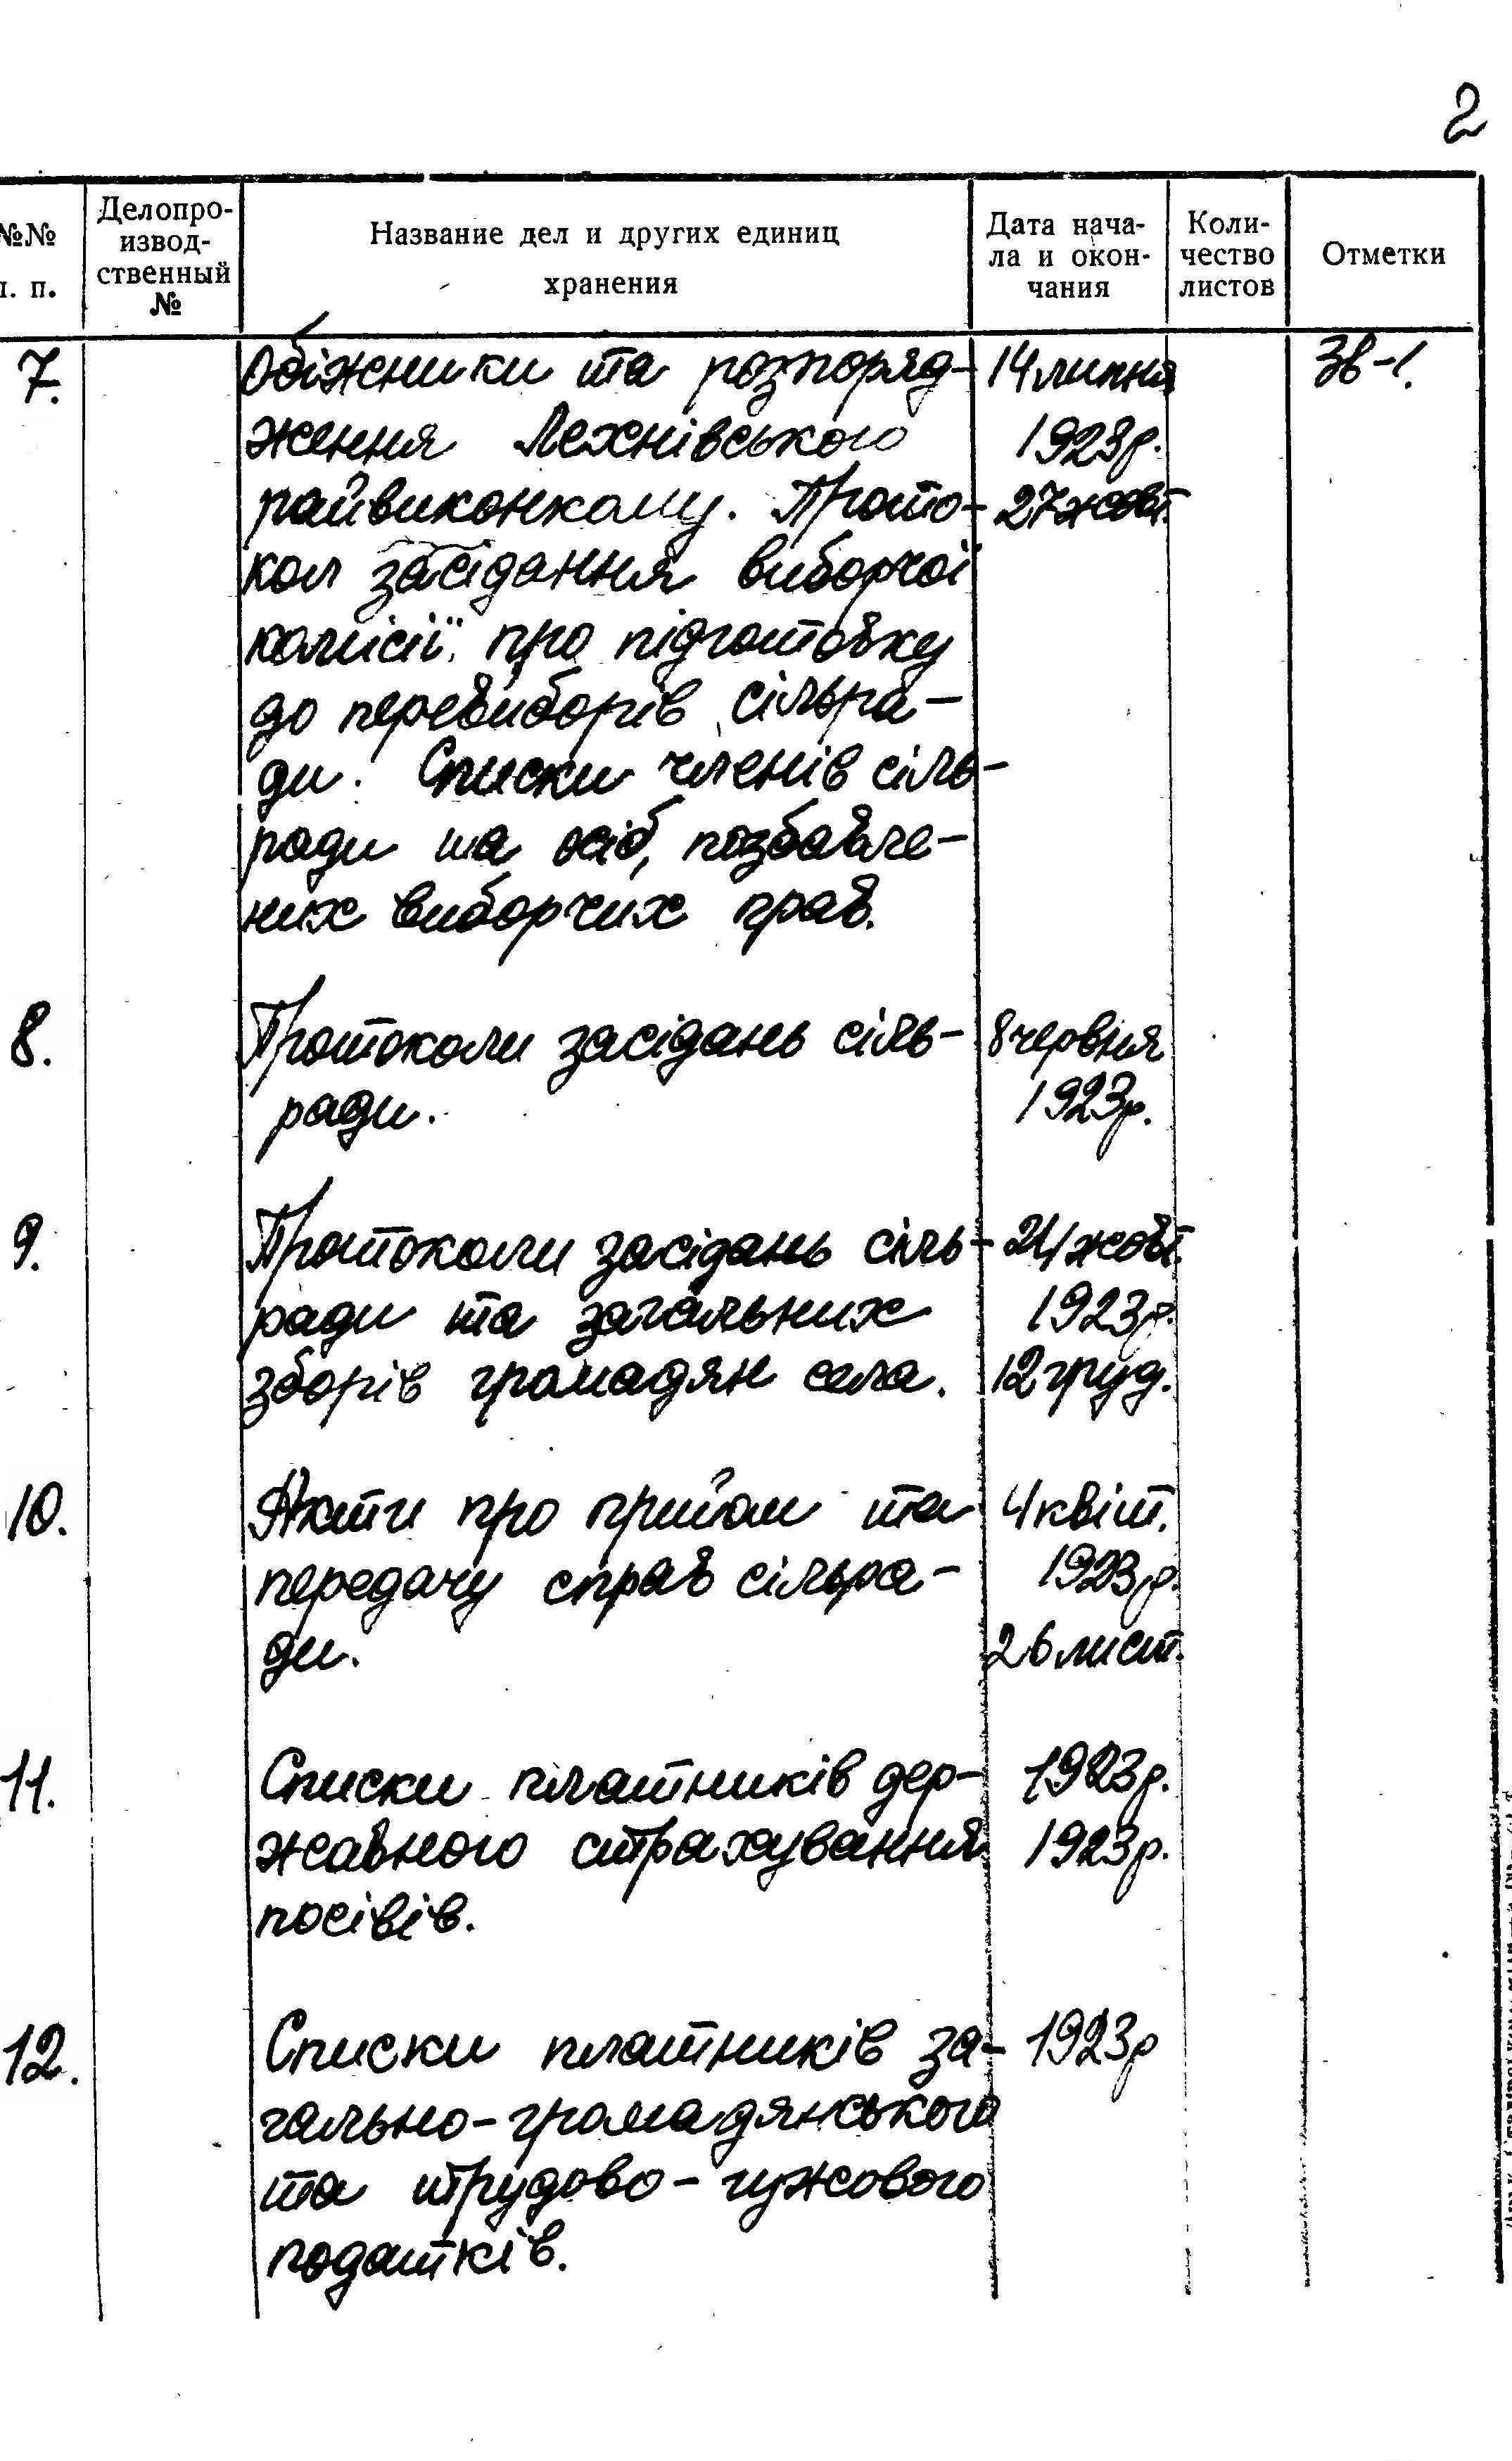 2
№№
п. п.
Делопро-
извод-
ственный
№
Название дел и других единиц
хранения
Дата нача-
ла и окон-
чания
Коли-
чество
листов
Отметки
7. Обіжники та розпоряд- 14 липня Зв-1.
ження Лехнівського 1923р.
райвиконкому. Прото- 27 жовт.
кол засідання виборчої
комісії про підготовку
до перевиборів сільра-
ди. Списки членів сіль-
ради та осіб, позбавле-
них виборчих прав.
8. Протоколи засідань сіль- 8 червня
ради. 1923р.
9. Протоколи засідань сіль- 24 жовт.
ради та загальних 1923р.
зборів громадян села. 12 груд.
10. Акти про прийом та 4 квіт.
передачу справ сільра- 1923р.
ди. 26 лист.
11. Списки платників дер- 1923р.
жавного страхування 1923р.
посівів.
12. Списки платників за- 1923р
гально-громадянського
та трудово-гужового
податків.